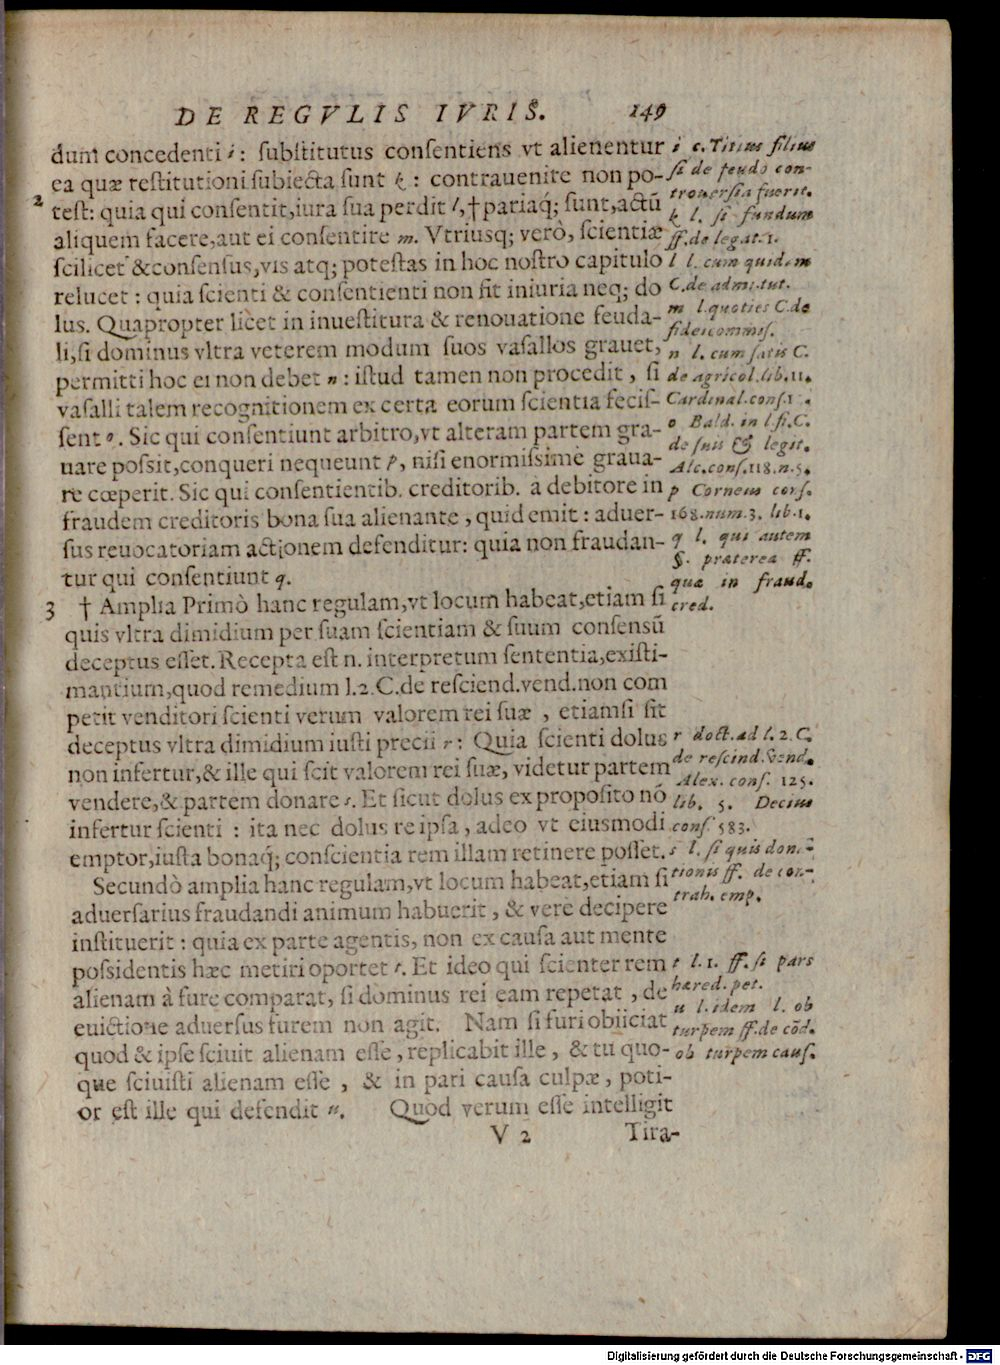 DE REGVLIS IVRIS. 149
dum concedenti i: ſubſtitutus conſentiens vt alienentur
ea quæ reſtitutioni ſubiecta ſunt k: contrauenire non po-
2 teſt: quia qui conſentit, iura ſua perdit l, † pariaq́; ſunt, actũ
aliquem facere, aut ei conſentire m. Vtriusq; verò, ſcientiæ
ſcilicet & conſenſus, vis atq; poteſtas in hoc noſtro capitulo
relucet: quia ſcienti & conſentienti non fit iniuria neq; do
lus. Quapropter licèt in inueſtitura & renouatione feuda-
li, ſi dominus vltra veterem modum ſuos vaſallos grauet,
permitti hoc ei non debet n: iſtud tamen non procedit, ſi
vaſalli talem recognitionem ex certa eorum ſcientia feciſ-
ſent o. Sic qui conſentiunt arbitro, vt alteram partem gra-
uare poſſit, conqueri nequeunt p, niſi enormiſsimè graua-
re cœperit. Sic qui conſentientib. creditorib. à debitore in
fraudem creditoris bona ſua alienante, quid emit: aduer-
ſus reuocatoriam actionem defenditur: quia non fraudan-
tur qui conſentiunt q.
3 † Amplia Primò hanc regulam, vt locum habeat, etiam ſi
quis vltra dimidium per ſuam ſcientiam & ſuum conſenſũ
deceptus eſſet. Recepta eſt n. interpretum ſententia, exiſti-
mantium, quod remedium l.2.C.de reſciend.vend. non com
petit venditori ſcienti verum valorem rei ſuæ, etiamſi ſit
deceptus vltra dimidium iuſti precii r: Quia ſcienti dolus
non infertur, & ille qui ſcit valorem rei ſuæ, videtur partem
vendere, & partem donare s. Et ſicut dolus ex propoſito nõ
infertur ſcienti: ita nec dolus re ipſa, adeo vt eiusmodi
emptor, iuſta bonaq́; conſcientia rem illam retinere poſſet.
Secundò amplia hanc regulam, vt locum habeat, etiam ſi
aduerſarius fraudandi animum habuerit, & verè decipere
inſtituerit: quia ex parte agentis, non ex cauſa aut mente
poſsidentis hæc metiri oportet t. Et ideo qui ſcienter rem
alienam à fure comparat, ſi dominus rei eam repetat, de
euictione aduerſus furem non agit. Nam ſi furi obiiciat
quod & ipſe ſciuit alienam eſſe, replicabit ille, & tu quo-
que ſciuiſti alienam eſſe, & in pari cauſa culpæ, poti-
or eſt ille qui defendit u. Quod verum eſſe intelligit
V 2 Tira-
i c. Titius filius
ſi de feudo con-
trouerſia fuerit.
k l. ſi fundum
ff. de legat. 1.
l l. cum quidem
C. de admi. tut.
m l. quoties C. de
fideicommiſ.
n l. cum ſatis C.
de agricol. lib. 11.
Cardinal. conſ. 1
o Bald. in l. fi. C.
de ſuis & legit.
Alc. conſ. 118. n. 5.
p Corneus conſ.
168. num. 3. lib. 1.
q l. qui autem
§. præterea ff.
quæ in fraud.
cred.
r doct. ad l. 2. C.
de reſcind. vend.
Alex. conſ. 125.
lib. 5. Decius
conſ. 583.
s l. ſi quis dona-
tionis ff. de con-
trah. emp.
t l. 1. ff. ſi pars
hæred. pet.
u l. idem l. ob
turpem ff. de cõd.
ob turpem cauſ.
Digitalisierung gefördert durch die Deutsche Forschungsgemeinschaft - DFG